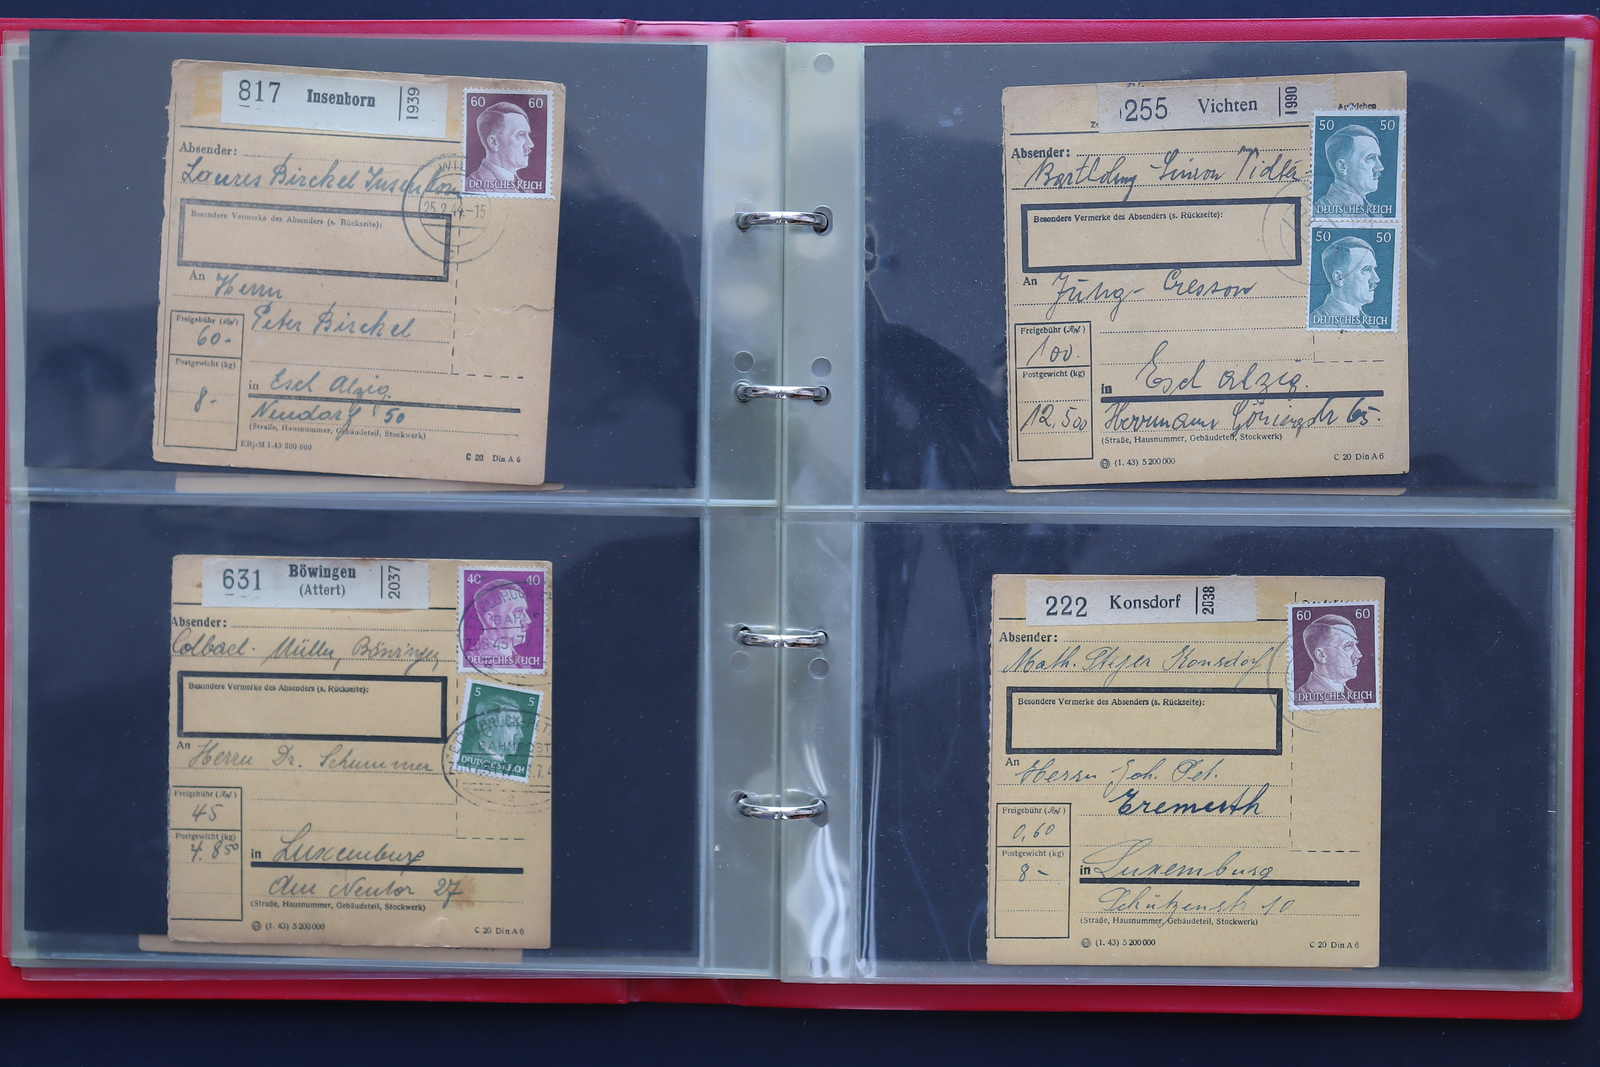 817 Insenborn 1939
60 60
DEUTSCHES REICH
Absender:
Birckel Insenborn
25.2.44.-15
Besondere Vermerke des Absenders (s. Rückseite):
An Herrn
Peter Birckel
Freigebühr (RM)
60-
Postgewicht (kg)
8-
in Esch Alzig.
Neudorf 50
(Straße, Hausnummer, Gebäudeteil, Stockwerk)
C 20 Din A 6
255 Vichten 1990
Aufkleben
50 50
DEUTSCHES REICH
50 50
DEUTSCHES REICH
Absender:
Simon
Besondere Vermerke des Absenders (s. Rückseite):
An
Freigebühr (RM)
100.
Postgewicht (kg)
12,500
in Esch Alzig.
Hermann Göringstr 65.
(Straße, Hausnummer, Gebäudeteil, Stockwerk)
(1. 43) 5 200 000
C 20 Din A 6
631 Böwingen (Attert) 2037
40 40
DEUTSCHES REICH
5 5
DEUTSCHES REICH
BAHNPOST
Absender:
Müller, Böwingen
Besondere Vermerke des Absenders (s. Rückseite):
An Herrn Dr. Schummer
Freigebühr (RM)
45
Postgewicht (kg)
4.850
in Luxemburg
Am Neutor 27
(Straße, Hausnummer, Gebäudeteil, Stockwerk)
(1. 43) 5 200 000
C 20 Din A 6
222 Konsdorf 2038
60 60
DEUTSCHES REICH
Absender:
Math. Konsdorf
Besondere Vermerke des Absenders (s. Rückseite):
An Herrn Joh. Pet.
Freigebühr (RM)
0,60
Postgewicht (kg)
8-
in Luxemburg
Schützenstr 10
(Straße, Hausnummer, Gebäudeteil, Stockwerk)
(1. 43) 5 200 000
C 20 Din A 6